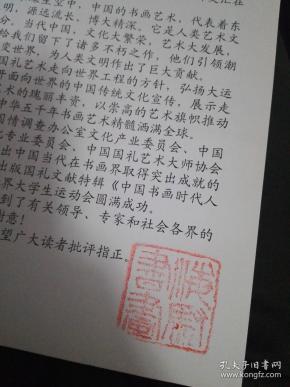 源星空中，中国的书画艺术，代表着东
明，源远流长，博大精深。它是人类艺术文
分。当代中国，文化大繁荣，艺术大发展，
给我们留下了诸多不朽之作，他们引领潮
变世界，为人类文明作出了巨大贡献。
国礼艺术走向世界工程的方针，弘扬大运
界面向世界的中国传统文化宣传，展示走
术的瑰丽丰资，以崇高的艺术旗帜推动
中华五千年书画艺术精髓洒满全球。
国情调查办公室文化产业委员会、中国
专业委员会、中国国礼艺术大师协会
出中国当代在书画界取得突出成就的
出版国礼文献特辑《中国书画时代人
界大学生运动会圆满成功。
到了有关领导、专家和社会各界的
谢意！
望广大读者批评指正。
书画
孔夫子旧书网